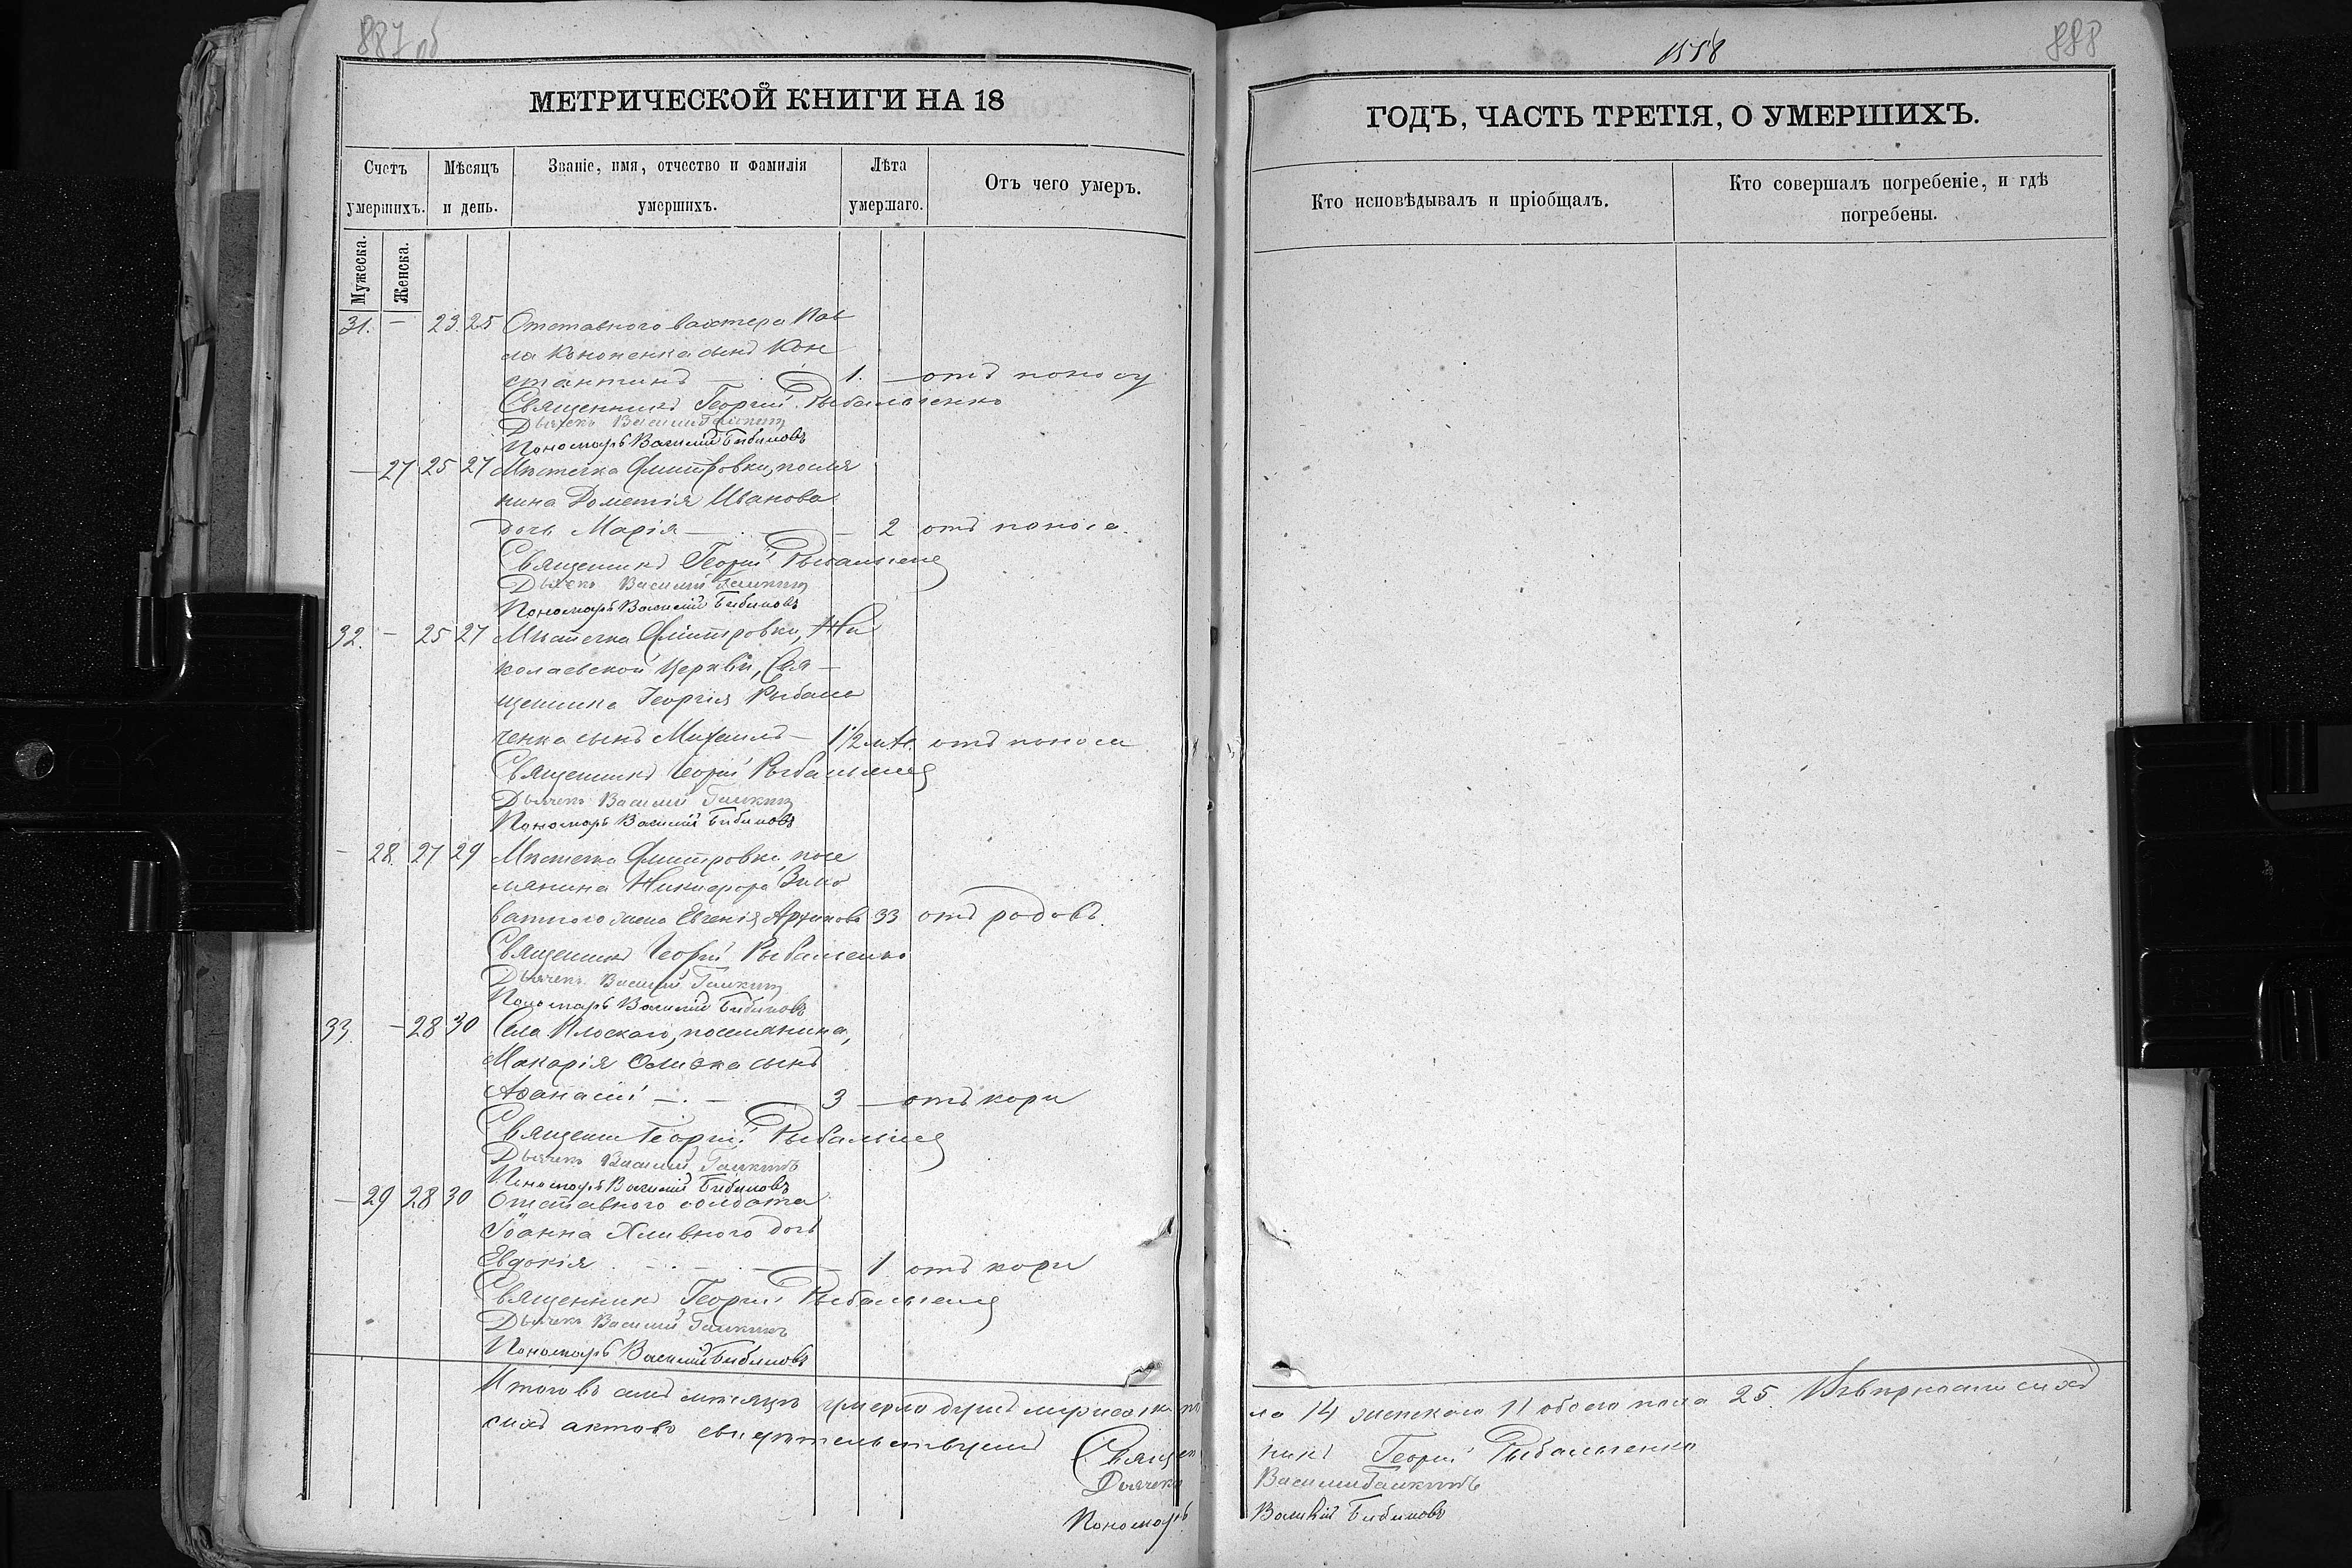 887 об
МЕТРИЧЕСКОЙ КНИГИ НА 18
Счетъ умершихъ.
Мѣсяцъ и день.
Званіе, имя, отчество и фамилія умершихъ.
Лѣта умершаго.
Отъ чего умеръ.
Мужеска.
Женска.
31. — 23. 25 Отставного вахтера Пав
ла Кононенка сынъ Кон
стантинъ — 1. — отъ поносу
Священникъ Георгій Рыбальченко
Дьячекъ Василий
Пономарь Василий Бибиковъ
— 27 25 27 Мѣстечка Дмитровки, поселя
нина Дометія Иванова
дочь Марія — — 2 отъ поноса.
Священникъ Георгій Рыбальченко
Дьячекъ Василий
Пономарь Василий Бибиковъ
32. — 25 27 Мѣстечка Дмитровки, Ни
колаевской Церкви, Свя—
щенника Георгія Рыбаль
ченка сынъ Михаилъ — 1 1/2 отъ поноса
Священникъ Георгій Рыбальченко
Дьячекъ Василий
Пономарь Василий Бибиковъ
— 28. 27 29 Мѣстечка Дмитровки, посе
лянина Никифора Вино
ватного жена Евгенія 33 отъ родовъ.
Священникъ Георгій Рыбальченко
Дьячекъ Василий
Пономарь Василий Бибиковъ
33. — 28 30 Села Плоскаго, поселянина,
Макарія сынъ
Афанасій — . — 3 — отъ кори
Священник Георгій Рыбальченко
Дьячекъ Василий
Пономарь Василий Бибиковъ
— 29 28 30 Отставного солдата
Іоанна Хливного дочь
Евдокія — . — 1 отъ кори
Священникъ Георгій Рыбальченко
Дьячекъ Василий
Пономарь Василий Бибиковъ
Итого въ семъ мѣсяцѣ умерло душъ мужеска по
сихъ актовъ свидѣтельствуемъ
Священ
Дьячекъ
Пономарь
1558
888
ГОДЪ, ЧАСТЬ ТРЕТІЯ, О УМЕРШИХЪ.
Кто исповѣдывалъ и пріобщалъ.
Кто совершалъ погребеніе, и гдѣ погребены.
ла 14 женского 11 обоего пола 25. Въ вѣрности сихъ
никъ Георгій Рыбальченко
Василий
Василий Бибиковъ